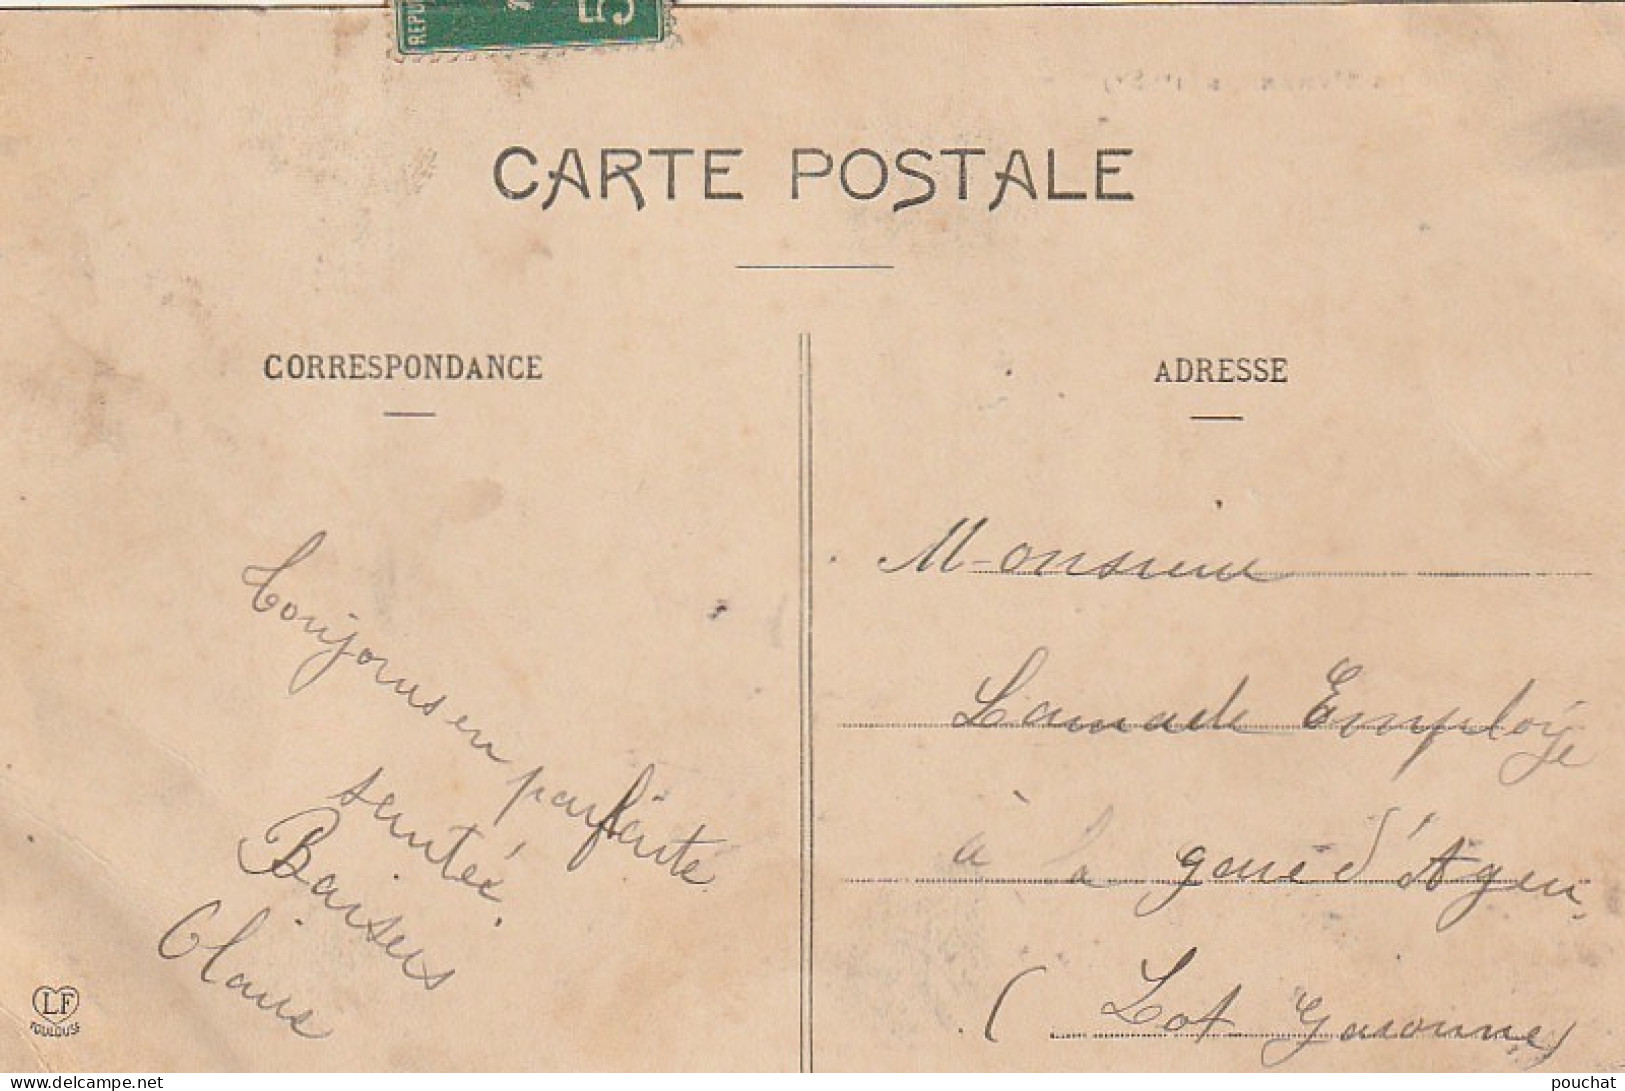 REPU
5
CARTE POSTALE
CORRESPONDANCE
Toujours en parfaite
santée.
Baisers
LF
TOULOUSE
ADRESSE
Monsieur
Lamade Employé
à la gare d'Agen
(Lot Garonne)
delcampe.net
pouchat